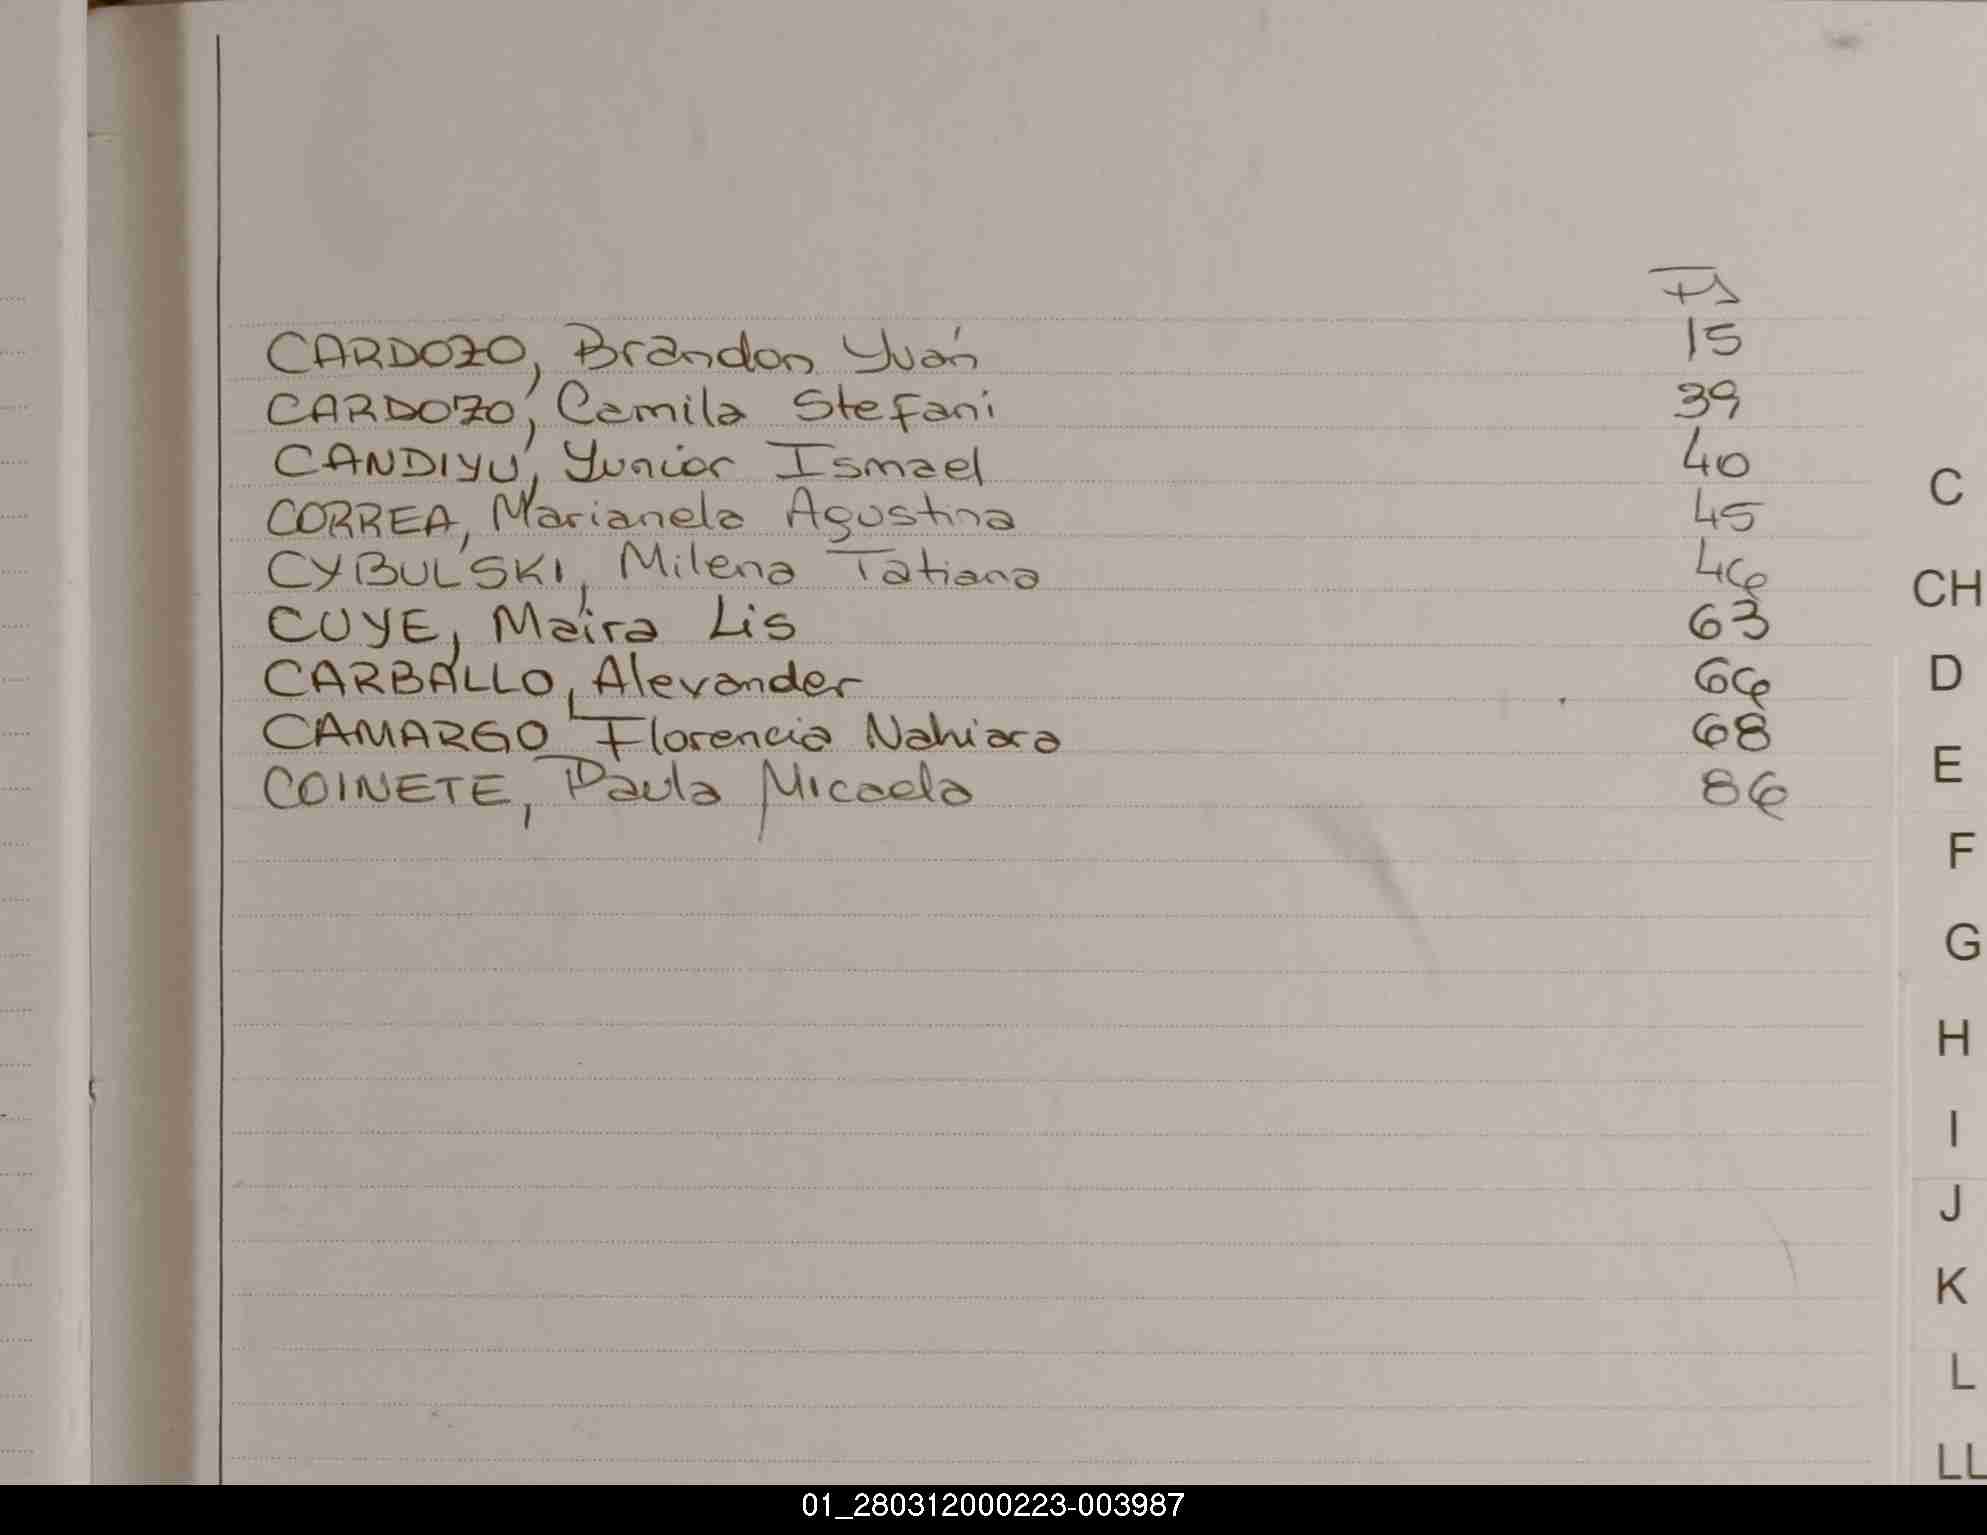 Fs
CARDOZO, Brandon Yván 15
CARDOZO, Camila Stefani 39
CANDIYU, Yunior Ismael 40
CORREA, Marianela Agustina 45
CYBULSKI, Milena Tatiana 46
CUYE, Maira Lis 63
CARBALLO, Alexander 66
CAMARGO, Florencia Nahiara 68
COINETE, Paula Micaela 86
C
CH
D
E
F
G
H
I
J
K
L
LL
01_280312000223-003987